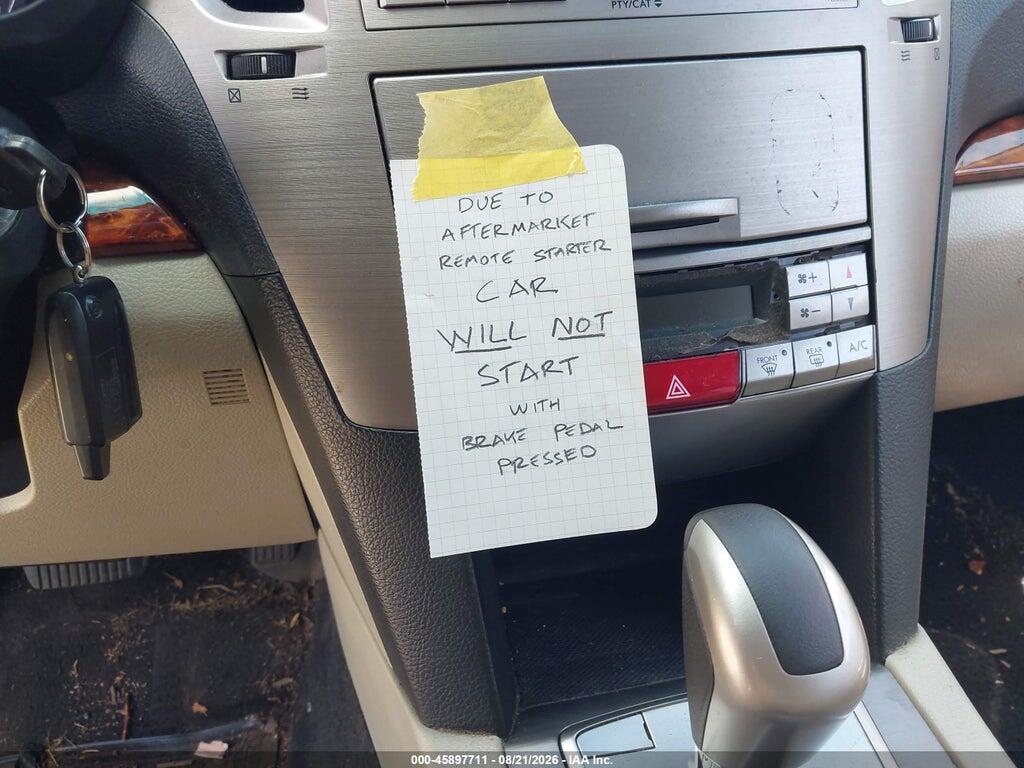 PTY/CAT
DUE TO
AFTERMARKET
REMOTE STARTER
CAR
WILL NOT
START
WITH
BRAKE PEDAL
PRESSED
FRONT
REAR
A/C
000-45897711 - 08/21/2026 - IAA Inc.